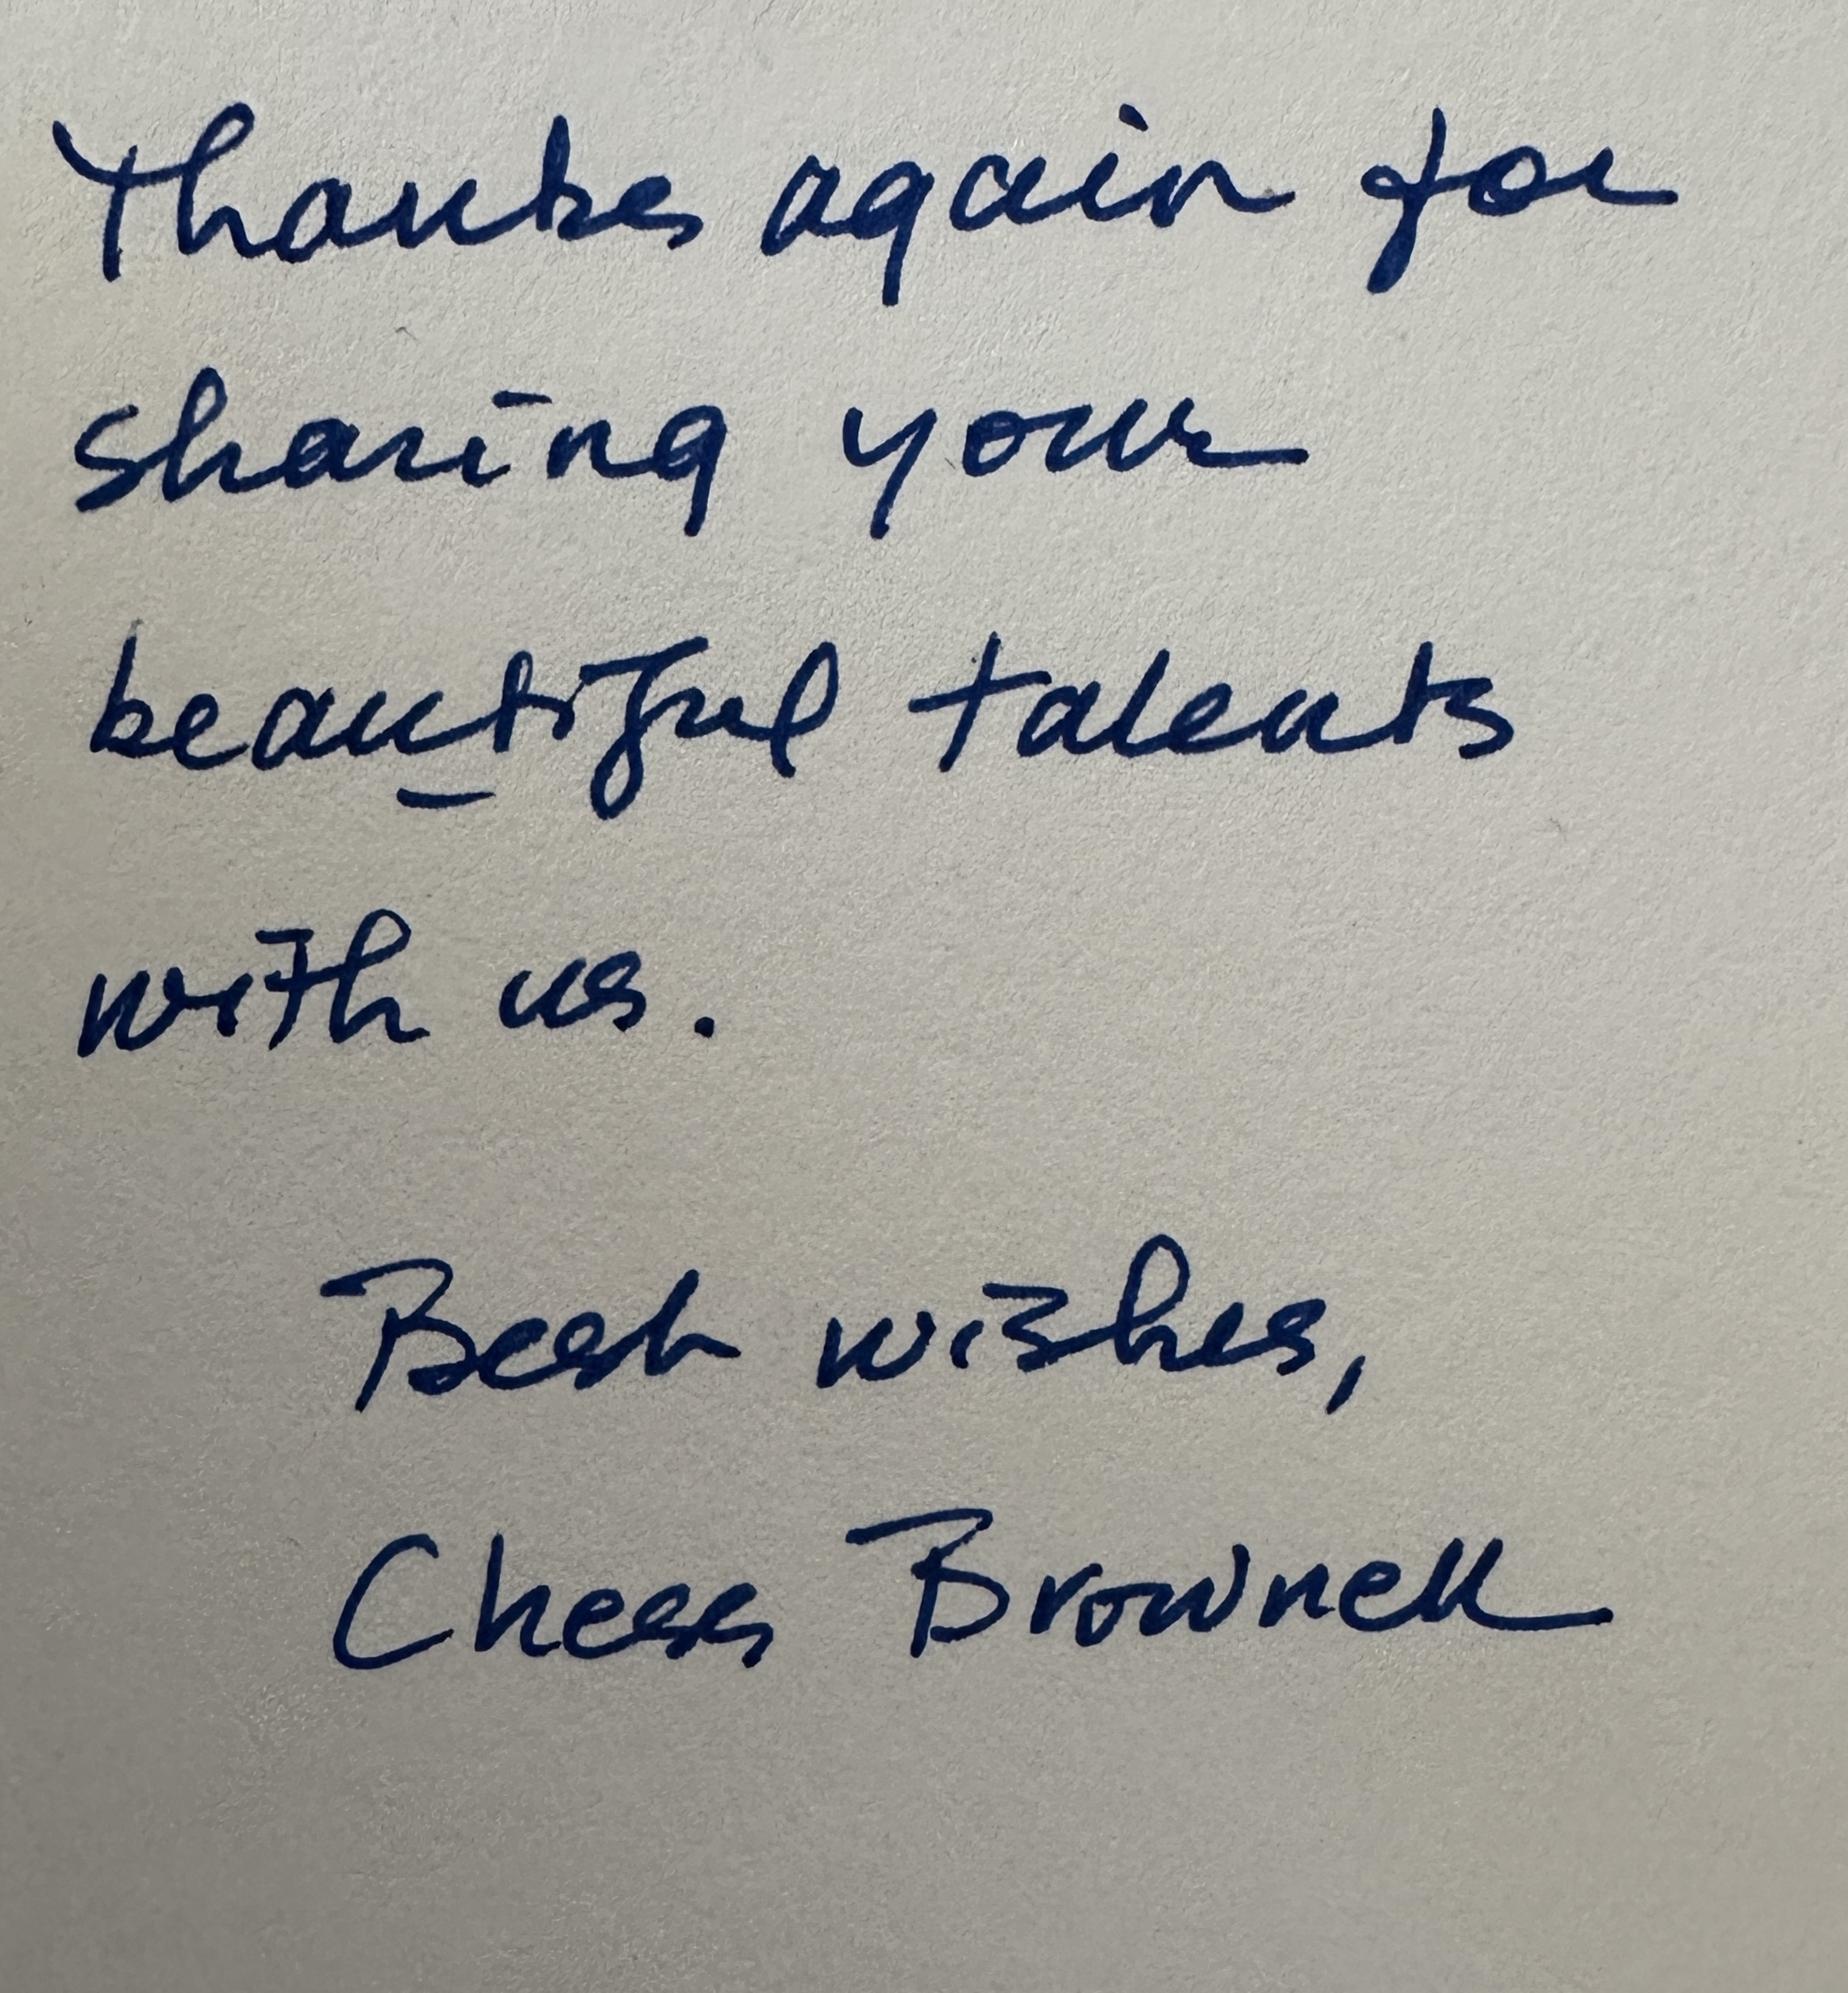 Thanks again for
sharing your
beautiful talents
with us.
Best wishes,
Chess Brownell